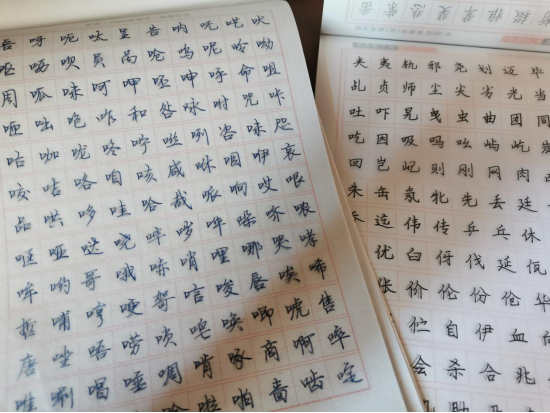 吾呀呃吠呈告呐呒呓吠
呕哂呗员呙呛呜呢呤呦
周呱味呵呷呸呻呼命咀
咂咄咆咋和咎咏咐咒咔
咕咖咙咚咛咝咧咨咪咫
咬咭咯咱咳咸咻咽咿哀
品哄哆哇哈哉哌响哎哏
哐哑哒哓哗哕哔哚哜哝
哞哟哥哦哧哨哩哪哭哮
哲哺哼哽唁唆唇唉唏
唐唑唔唠唢唤唧唬售
唯唰唱唾啁啃啄商啊啐
啪啬啮啶
夹夷轨邪尧划迈毕
乩贞师尘尖劣光当
吐吓晃曳虫曲团同
吃因吸吗吆屿屹
回岂屺则刚网肉
朱缶氖牝先丢廷
乒迄伟传乓休
优臼伢伐延
价伦份伧华
自伊血向
会杀合兆